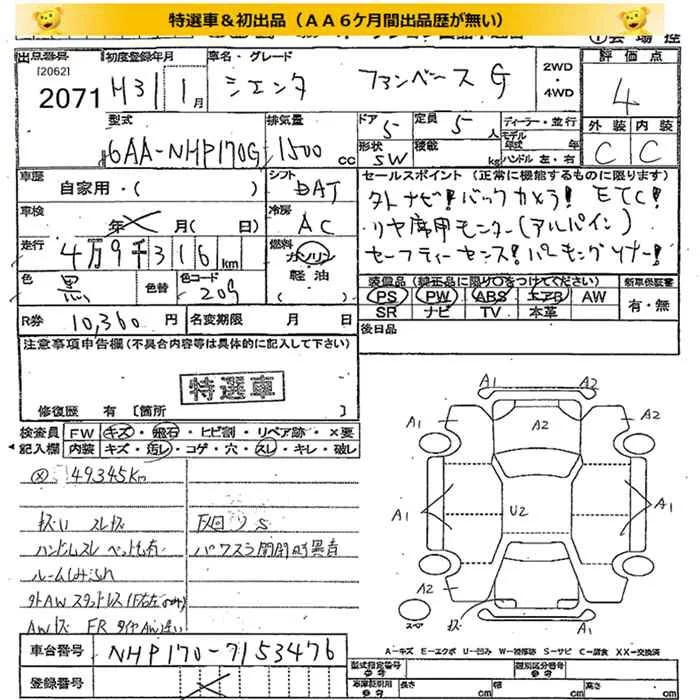 特選車＆初出品（ＡＡ６ケ月間出品歴が無い）
出品番号
[2062]
2071
初度登録年月
H31 1月
車名・グレード
シエンタ ファンベースG
2WD
・
4WD
評価点
4
外装 内装
C C
型式
6AA-NHP170G
排気量
1500 cc
ドア
5
形状
SW
定員
5人
積載
kg
ディーラー・並行
モデル
年式 年
ハンドル 左・右
車歴
自家用・( )
シフト
DAT
セールスポイント（正常に機能するものに限ります）
外ナビ! バックカメラ! ETC!
リヤ席用モニター(アルパイン)
セーフティーセンス! パーキングソナー!
車検
年 月( 日)
冷房
AC
走行
4万9千316km
燃料
ガソリン
軽油
( )
色
黒
色替
色コード
209
装備品（純正品に限り○をつけてください）
PS PW ABS エアB AW
SR ナビ TV 本革
新車保証書
有・無
R券 10,360円
名変期限 月 日
後日品
注意事項申告欄（不具合内容等は具体的に記入して下さい）
特選車
修復歴 有［箇所 ］
検査員
記入欄
FW キズ・飛石・ヒビ割・リペア跡・×要
内装 キズ・汚レ・コゲ・穴・スレ・キレ・破レ
49345km
ハンドルスレ ペット毛有
パワスラ開閉時異音
ルームしみ汚れ
A1 A2
A1 A2 A2
A1 U2 A1
A2 A2
キズ A1
スペア
A－キズ E－エクボ U－凹み W－補修跡 S－サビ C－腐食 XX－交換済
車台番号 NHP170-7153476
登録番号
型式指定番号
参考
類別区分番号
参考
車庫証明用
参考
長さ cm 幅 cm 高さ cm